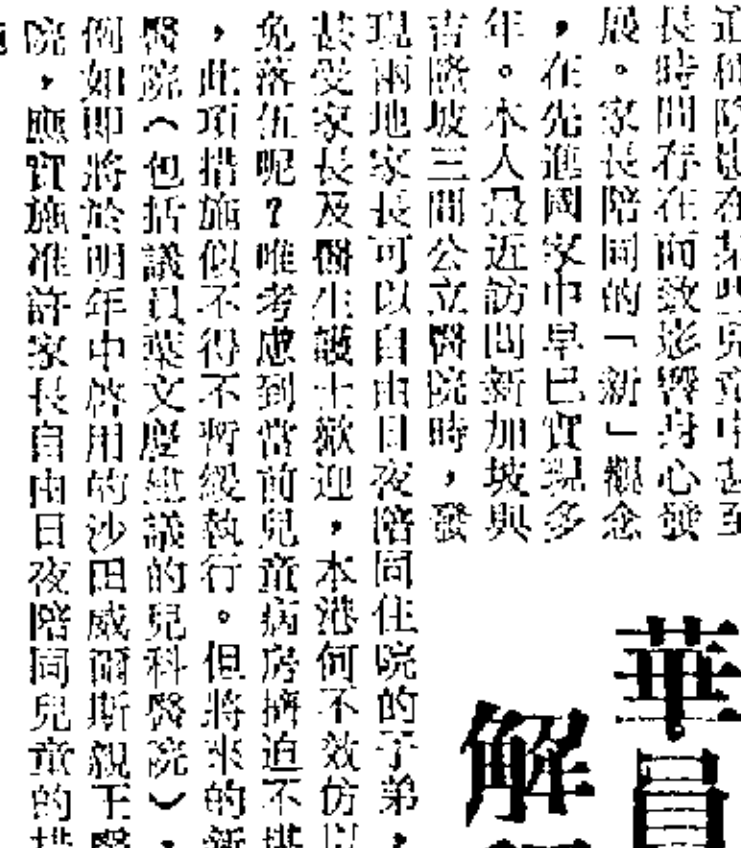 長時間存在而致影響身心發
展。家長陪同的「新」觀念
，在先進國家中早已實現多
年。本人最近訪問新加坡與
吉隆坡三間公立醫院時，發
現兩地家長可以自由日夜陪同住院的子弟，
甚受家長及醫生護士歡迎，本港何不效仿以
免落伍呢？唯考慮到當前兒童病房擠迫不堪
，此項措施似不得不暫緩執行。但將來的新
醫院（包括議員葉文慶建議的兒科醫院），
例如即將於明年中啓用的沙田威爾斯親王醫
院，應實施准許家長自由日夜陪同兒童的措
華員
解